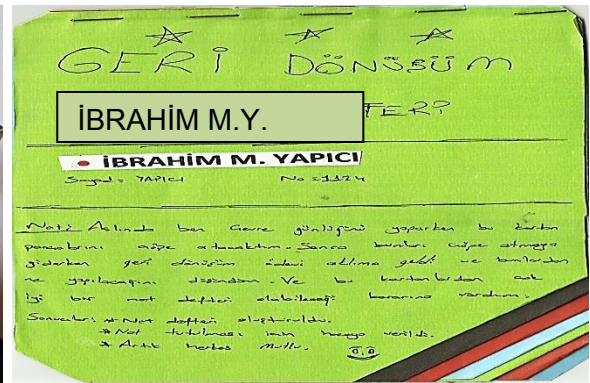 GERİ DÖNÜŞÜM
TERİ
İBRAHİM M.Y.
İBRAHİM M. YAPICI
Soyad: YAPICI No: 1124
Not: Aslında ben Çevre günlüğünü yaparken bu karton
parçalarını çöpe atacaktım. Sonra bunları çöpe atmaya
giderken geri dönüşüm ödevi aklıma geldi ve bunlardan
ne yapılacağını düşündüm. Ve bu kartonlardan çok
iyi bir not defteri olabileceği kararına vardım.
Sonuçlar: * Not defteri oluşturuldu.
* Not tutulması için havaya verildi.
* Artık herkes mutlu.